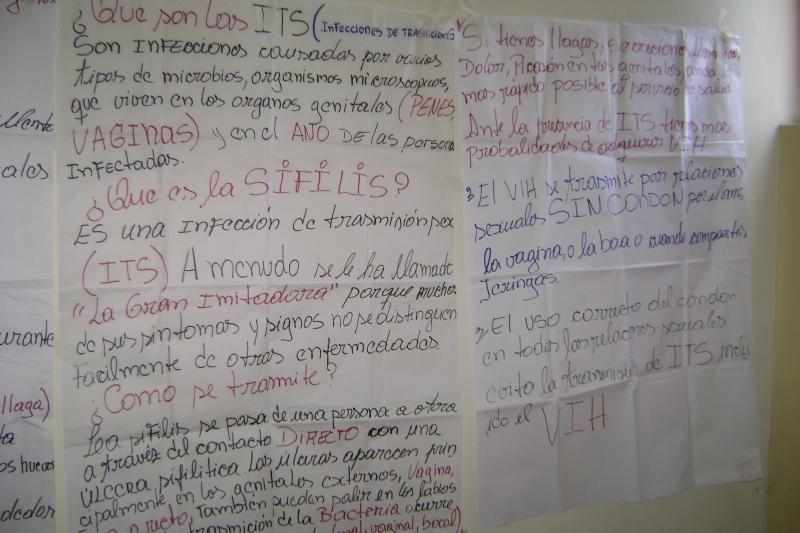 llente
ales
urante
llaga)
ta
os huesos
dedor
¿Que son las ITS (INFECCIONES DE TRASMICIONS
SON INFECCIONES causadas por varios
tipos de microbios, organismos microscopicos,
que viven en los organos genitales (PENES,
VAGINAS) y en el ANO DE las persona
INFectadas.
¿Que es la SIFILIS?
ES una INFECCIÓN de trasminión sex
(ITS) A menudo se le ha llamado
"La Gran Imitadora" porque muchos
de sus sintomas y signos no se distinguen
facilmente de otras enfermedades.
¿Como se trasmite?
La sifilis se pasa de una persona a otra
a travéz del contacto DIRECTO con una
ÚLCERA sifilitica Las úlceras aparecen prin
cipalmente en los genitales externos, Vagina,
recto, También pueden salir en los labios
trasmición de la Bacteria ocurre
anal, vaginal, bocal)
Si tienes llagas, secreciones
Dolor, Picasón en tus genitales, anda lo
mas rápido posible al servicio de salud
Ante la presencia de ITS tienes mas
probalidades de adquirir VIH
3 El VIH se trasmite por relaciones
sexuales SIN CONDON por el ano,
la vagina, o la boca o cuando compartes
Jeringas.
3 El uso correcto del condón
en todas las relaciones sexuales
corta la transmisión de ITS inclu
ido el VIH.